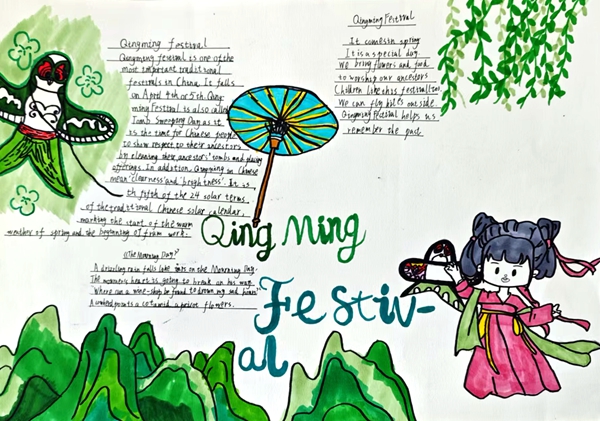 Qingming festival
Qingming festival is one of the
most important traditional
festivals in China. It falls
in April 4th or 5th. Qing
ming Festival is also called
Tomb Sweeping Day as it
is the time for Chinese people
to show respect to their ancestors
by cleaning their ancestors' tombs and placing
offerings. In addition, Qingming in Chinese
mean 'clearness' and 'brightness'. It is
th fifth of the 24 solar terms
of the traditional Chinese solar calendar,
marking the start of the warm
weather of spring and the beginning of farm work.
《The Mourning Day》
A drizzling rain falls like tears on the Mourning Day.
The mourner's heart is going to break on his way.
Where can a wine-shop be found to drown his sad hours?
A cowherd points a cot amid apricot flowers.
Qingming Festival
It comes in spring
It is a special day
We bring flowers and food
to worship our ancestors
Children like this festival too.
We can fly kites outside
Qingming Festival helps us
remember the past
Qing Ming
Festiv-
al